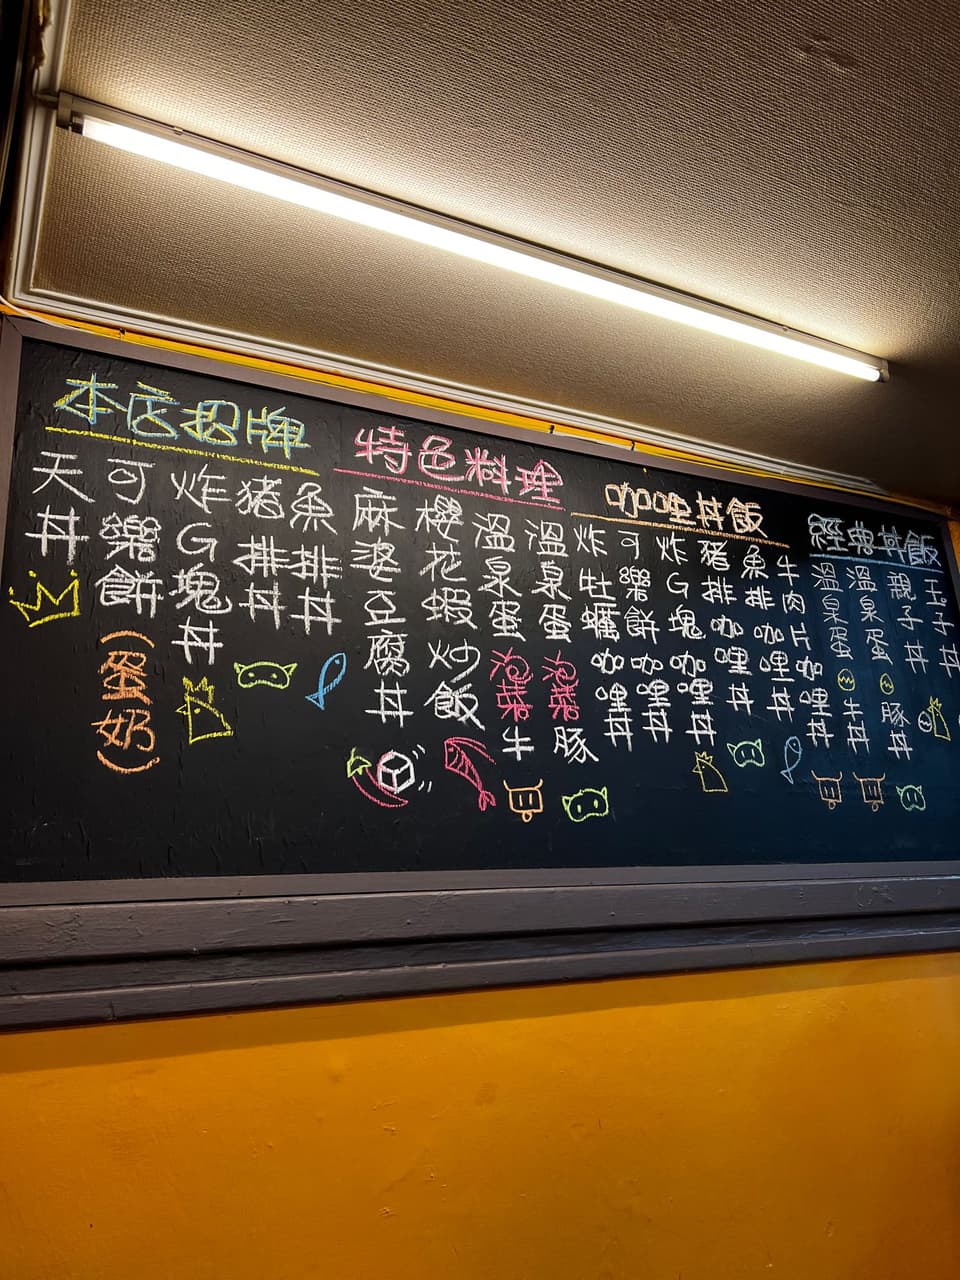 本店招牌
天丼
可樂餅
(蛋奶)
炸G塊丼
豬排丼
魚排丼
特色料理
麻婆豆腐丼
櫻花蝦炒飯
溫泉蛋泡菜牛
溫泉蛋泡菜豚
咖哩丼飯
炸牡蠣咖哩丼
可樂餅咖哩丼
炸G塊咖哩丼
豬排咖哩丼
魚排咖哩丼
牛肉片咖哩丼
經典丼飯
溫泉蛋牛丼
溫泉蛋豚丼
親子丼
玉子丼